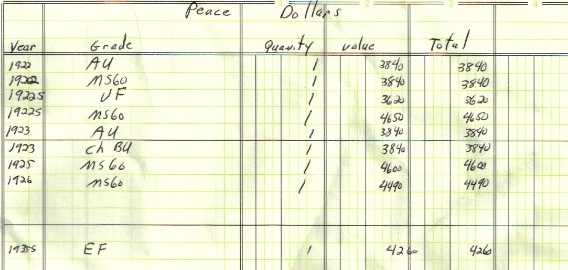 Peace Dollars
Year Grade Quantity value Total
1922 AU 1 3840 3840
1922 MS60 1 3840 3840
1922S VF 1 3620 3620
1922S MS60 1 4650 4650
1923 AU 1 3840 3840
1923 ch BU 1 3840 3840
1925 MS60 1 4600 4600
1926 MS60 1 4490 4490
1935S EF 1 4260 4260